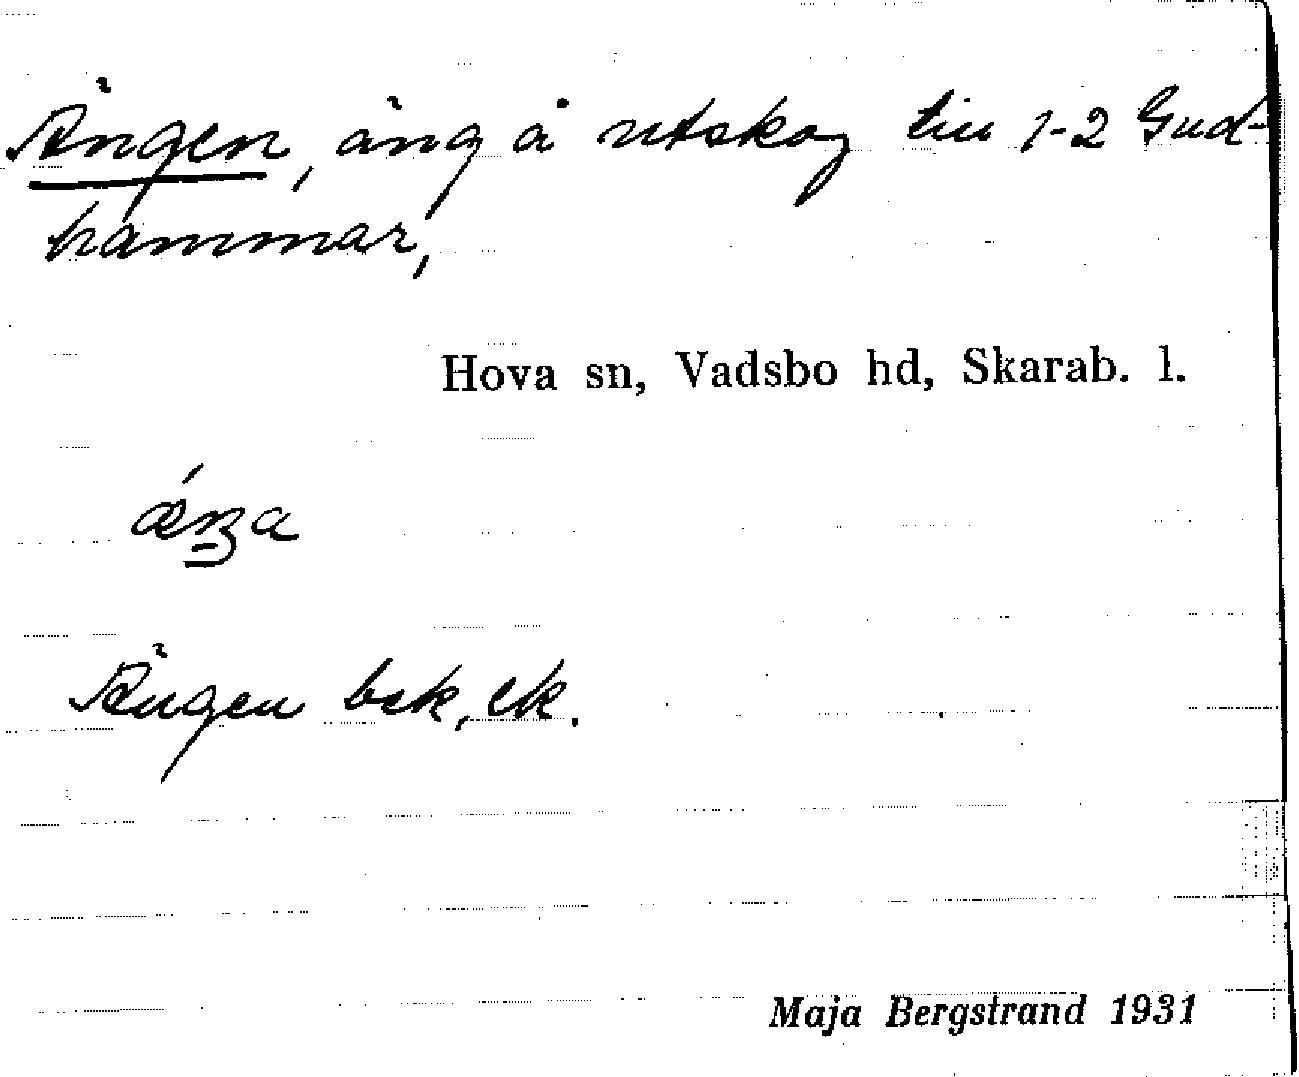 Ängen, äng å utskog till 1-2 Gud-
hammar,
Hova sn, Vadsbo hd, Skarab. l.
Ängen bsk, ek.
Maja Bergstrand 1931